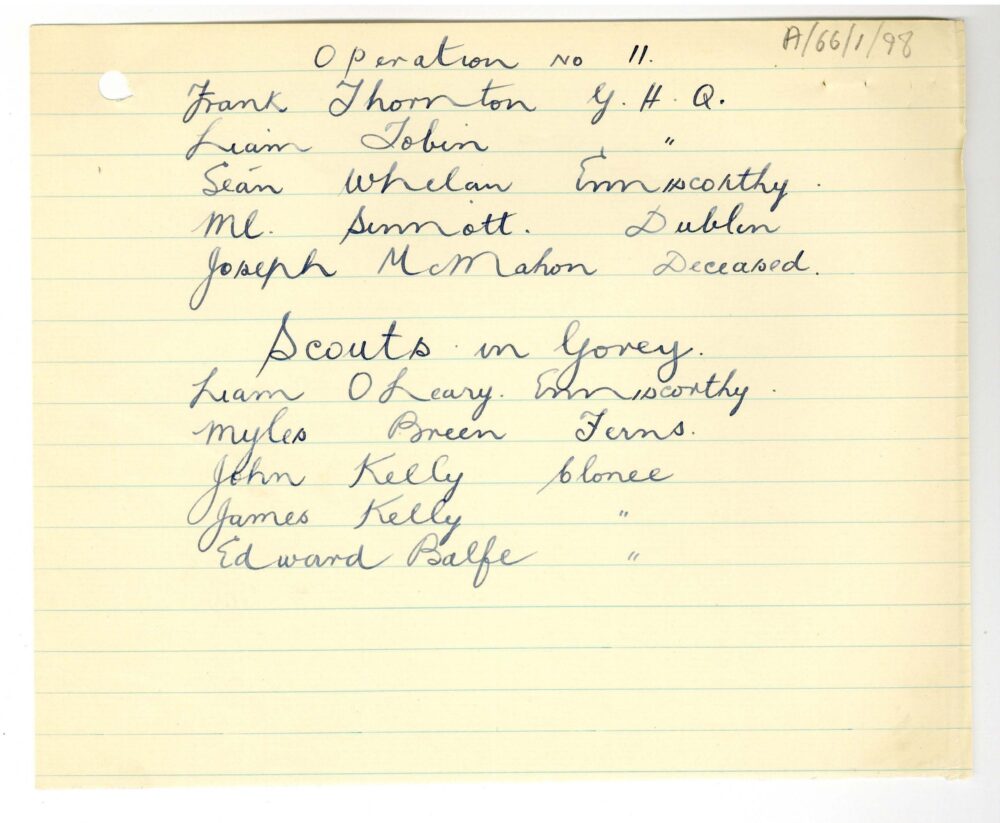 A/66/1/98
Operation No 11.
Frank Thornton G. H. Q.
Liam Tobin "
Seán Whelan Enniscorthy.
Ml. Sinnott. Dublin
Joseph McMahon Deceased.
Scouts in Gorey.
Liam O Leary. Enniscorthy.
Myles Breen Ferns.
John Kelly Clonee
James Kelly "
Edward Balfe "